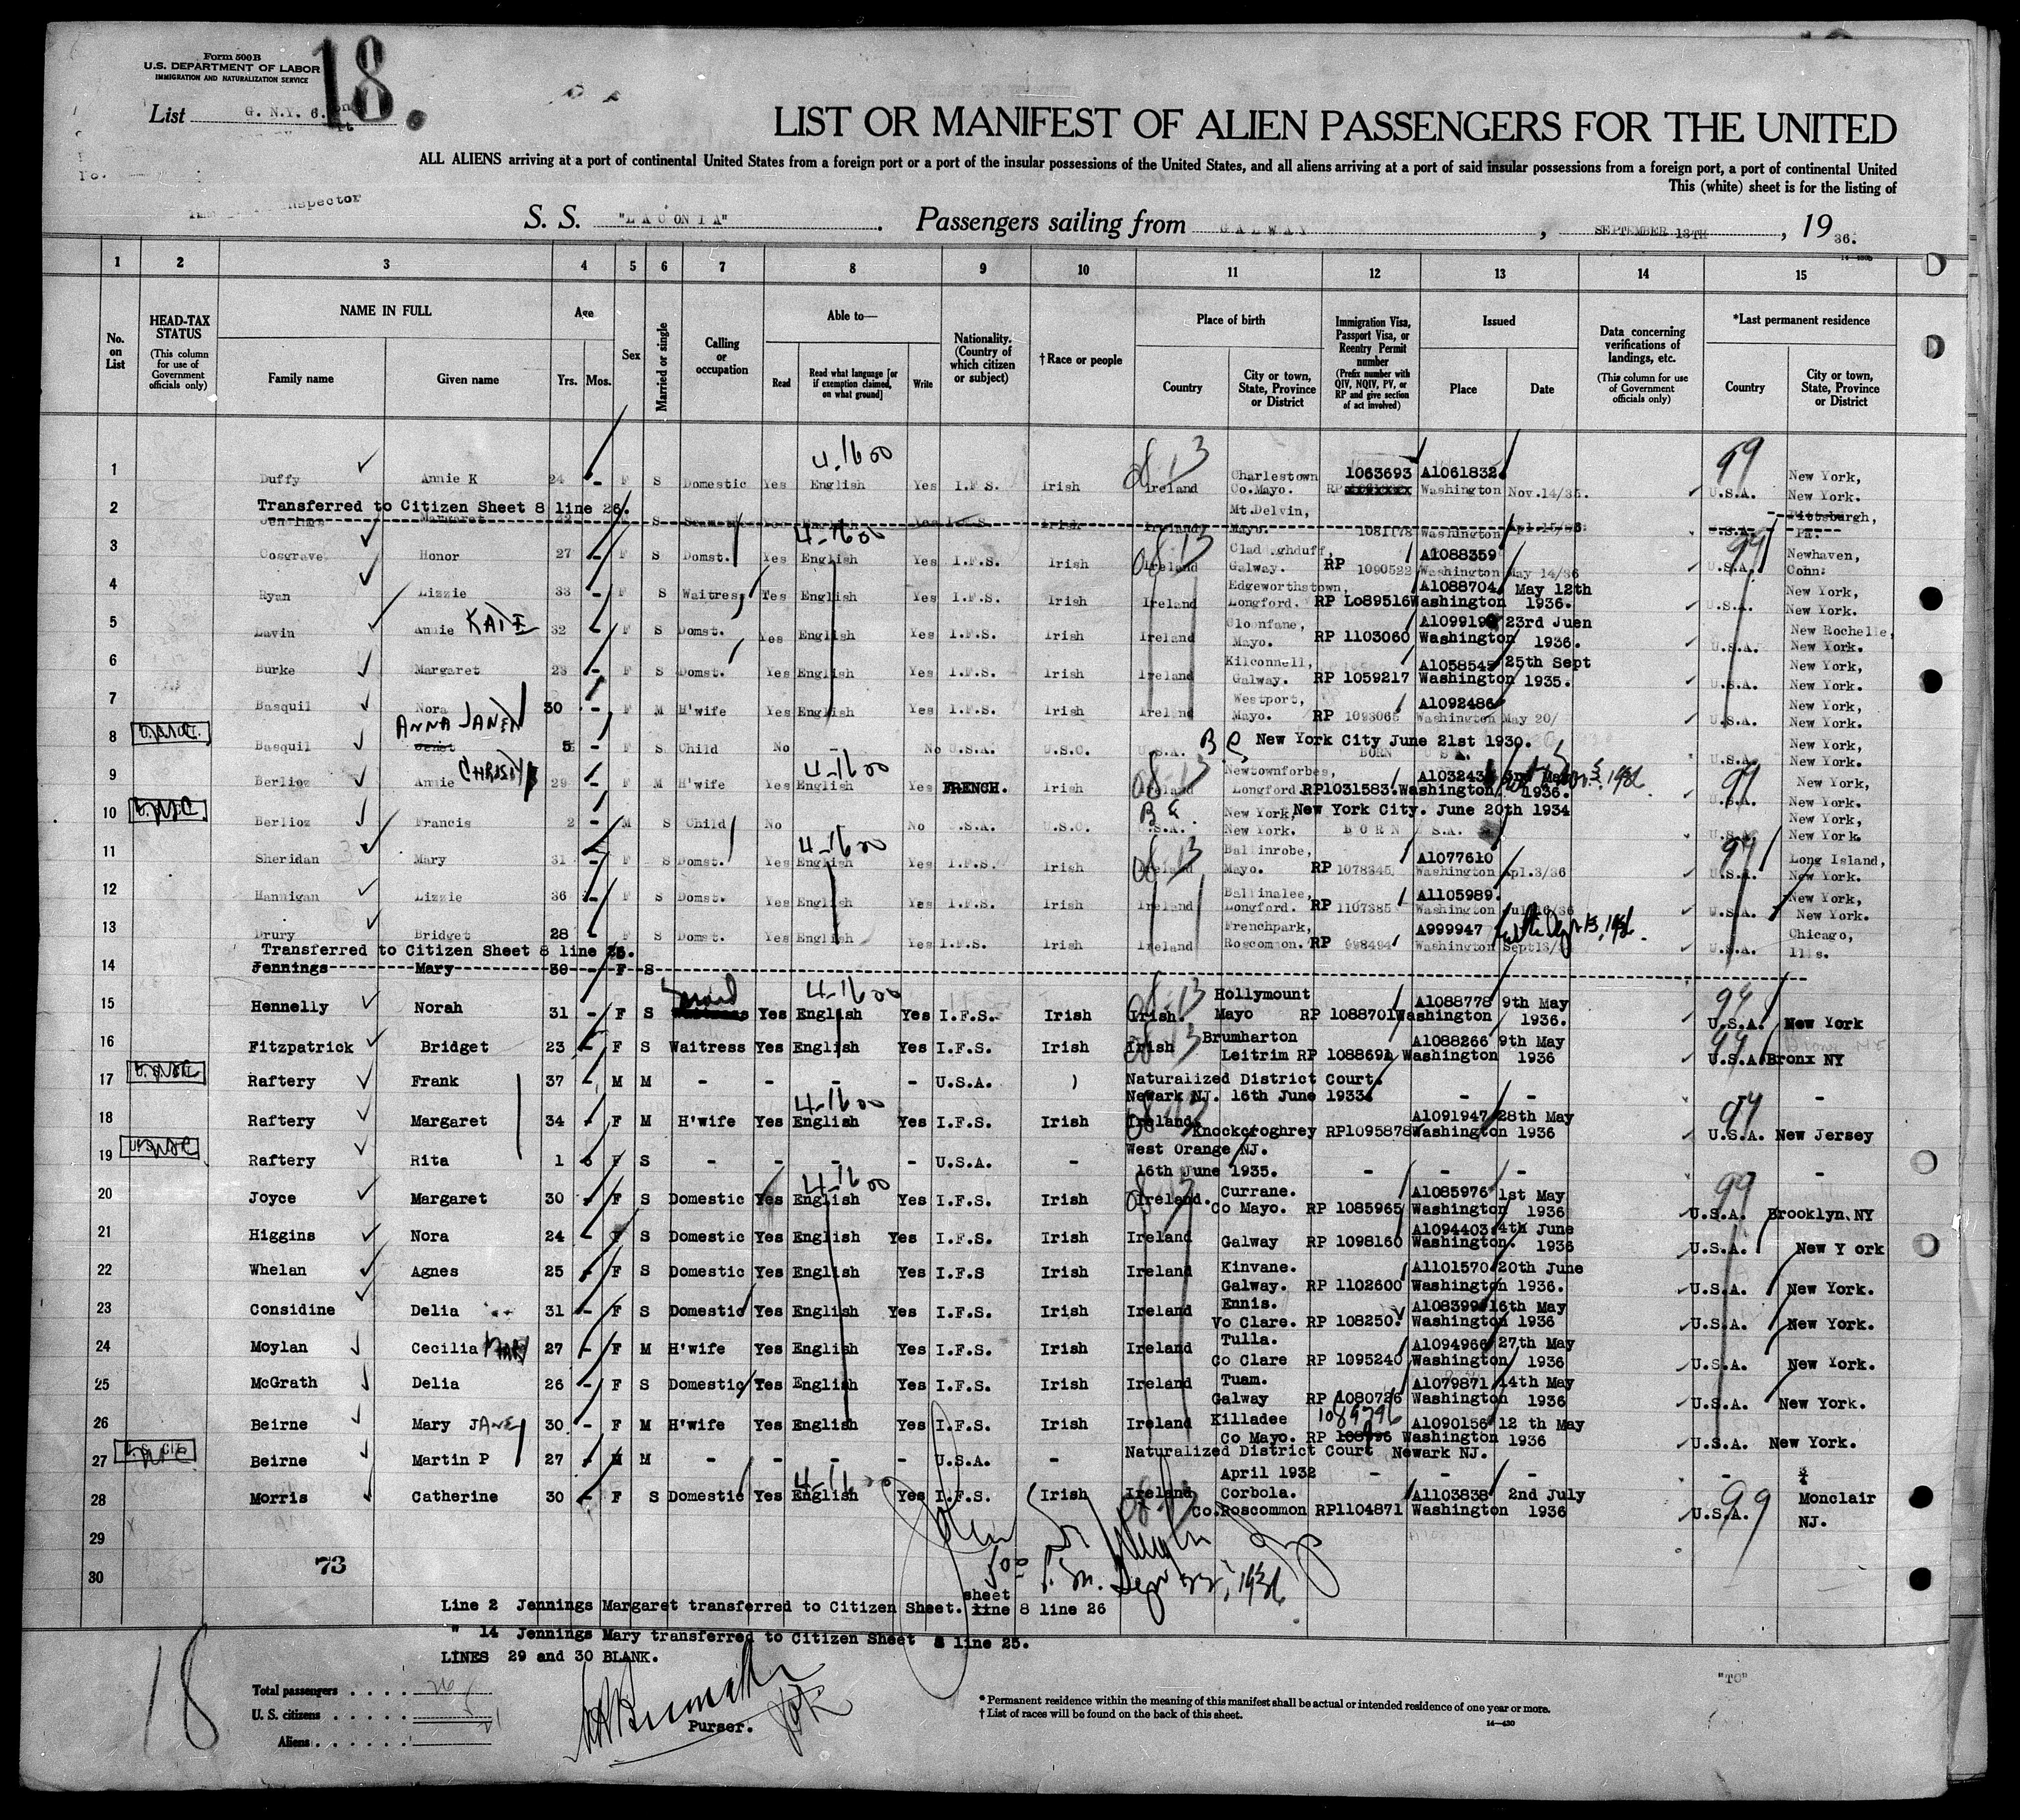 Form 500B
U.S. DEPARTMENT OF LABOR
IMMIGRATION AND NATURALIZATION SERVICE
18.
List G. N.Y. 6.
LIST OR MANIFEST OF ALIEN PASSENGERS FOR THE UNITED
ALL ALIENS arriving at a port of continental United States from a foreign port or a port of the insular possessions of the United States, and all aliens arriving at a port of said insular possessions from a foreign port, a port of continental United
This (white) sheet is for the listing of
Inspector
S. S. "LACONIA". Passengers sailing from GALWAY, SEPTEMBER 13TH, 1936.
1 2 3 4 5 6 7 8 9 10 11 12 13 14 15
No. on List
HEAD-TAX STATUS (This column for use of Government officials only)
NAME IN FULL
Family name Given name
Age
Yrs. Mos.
Sex
Married or single
Calling or occupation
Able to—
Read Read what language [or if exemption claimed, on what ground] Write
Nationality. (Country of which citizen or subject)
†Race or people
Place of birth
Country City or town, State, Province or District
Immigration Visa, Passport Visa, or Reentry Permit number (Prefix number with QIV, NQIV, PV, or RP and give section of act involved)
Issued
Place Date
Data concerning verifications of landings, etc. (This column for use of Government officials only)
*Last permanent residence
Country City or town, State, Province or District
1 Duffy Annie K 24 - F S Domestic Yes English Yes I.F.S. Irish Ireland Charlestown Co.Mayo. 1063693 RP A1061832 Washington Nov.14/35. U.S.A. New York, New York.
Transferred to Citizen Sheet 8 line 26.
2 Jennings Margaret S Irish Ireland Mt.Delvin, Mayo. 1081178 Washington Apl.15/36 U.S.A. Pittsburgh, Pa.
3 Cosgrave Honor 27 - F S Domst. Yes English Yes I.F.S. Irish Ireland Galway. RP 1090522 A1088359 Washington May 14/36 U.S.A. Newhaven, Conn:
4 Ryan Lizzie 33 - F S Waitress Yes English Yes I.F.S. Irish Ireland Edgeworthstown, Longford. RP Lo89516 A1088704 Washington May 12th 1936. U.S.A. New York, New York.
5 Lavin Annie KATE 32 - F S Domst. Yes English Yes I.F.S. Irish Ireland Cloonfane, Mayo. RP 1103060 Washington 23rd Juen 1936. U.S.A. New Rochelle, New York.
6 Burke Margaret 23 - F S Domst. Yes English Yes I.F.S. Irish Ireland Kilconnell, Galway. RP 1059217 A1058545 Washington 25th Sept 1935. U.S.A. New York, New York.
7 Basquil Nora 30 - F M H'wife Yes English Yes I.F.S. Irish Ireland Westport, Mayo. RP 1093065 A1092486 Washington May 20/ U.S.A. New York, New York.
8 Basquil ANNA JANET 5 - F S Child No - No U.S.A. U.S.C. U.S.A. New York City June 21st 1930. BORN U.S.A. New York, New York.
9 Berlioz Annie 29 - F M H'wife Yes English Yes FRENCH. Irish Ireland Newtownforbes, Longford. RP1031583. Washington 1936. U.S.A. New York, New York.
10 Berlioz Francis 2 - M S Child No No U.S.A. U.S.C. U.S.A. New York, New York. New York City. June 20th 1934 BORN U.S.A. New York, New York.
11 Sheridan Mary 31 - F S Domst. Yes English Yes I.F.S. Irish Ireland Ballinrobe, Mayo. RP 1078345 A1077610 Washington Apl.3/36 U.S.A. Long Island, New York.
12 Hannigan Lizzie 36 - F S Domst. Yes English Yes I.F.S. Irish Ireland Ballinalee, Longford. RP 1107385 A1105989. Washington U.S.A. New York, New York.
13 Drury Bridget 28 - F S Domst. Yes English Yes I.F.S. Irish Ireland Frenchpark, Roscommon. RP 998494 A999947 Washington U.S.A. Chicago, Ills.
Transferred to Citizen Sheet 8 line 25.
14 Jennings Mary 30 - F S
15 Hennelly Norah 31 - F S Yes English Yes I.F.S. Irish Irish. Hollymount Mayo RP 1088701 A1088778 Washington 9th May 1936. U.S.A. New York
16 Fitzpatrick Bridget 23 - F S Waitress Yes English Yes I.F.S. Irish Irish Brumharton Leitrim RP 1088691 A1088266 Washington 9th May 1936 U.S.A. Bronx NY
17 Raftery Frank 37 - M M - - - - U.S.A. Naturalized District Court. Newark NJ. 16th June 1933. - - -
18 Raftery Margaret 34 - F M H'wife Yes English Yes I.F.S. Irish Ireland Knockcroghrey RP1095878 A1091947 Washington 28th May 1936 U.S.A. New Jersey
19 Raftery Rita 1 6 F S - - - - U.S.A. - West Orange NJ. 16th June 1935. - - - -
20 Joyce Margaret 30 - F S Domestic Yes English Yes I.F.S. Irish Ireland. Currane. Co Mayo. RP 1085965 A1085976 Washington 1st May 1936 U.S.A. Brooklyn, NY
21 Higgins Nora 24 - F S Domestic Yes English Yes I.F.S. Irish Ireland Galway RP 1098160 A1094403 Washington. 4th June 1936 U.S.A. New Y ork
22 Whelan Agnes 25 - F S Domestic Yes English Yes I.F.S Irish Ireland Kinvane. Galway. RP 1102600 A1101570 Washington 20th June 1936. U.S.A. New York.
23 Considine Delia 31 - F S Domestic Yes English Yes I.F.S. Irish Ireland Ennis. Vo Clare. RP A108399 Washington 16th May 1936 U.S.A. New York.
24 Moylan Cecilia MARY 27 - F M H'wife Yes English Yes I.F.S. Irish Ireland Tulla. Co Clare RP 1095240 A1094966 Washington 27th May 1936 U.S.A. New York.
25 McGrath Delia 26 - F S Domestic Yes English Yes I.F.S. Irish Ireland Tuam. Galway RP 1080726 A1079871 Washington 14th May 1936 U.S.A. New York.
26 Beirne Mary JANE 30 - F M H'wife Yes English Yes I.F.S. Irish Ireland Killadee Co Mayo. RP 1089796 A1090156 Washington 12 th May 1936 U.S.A. New York.
27 Beirne Martin P 27 - M M - - - - U.S.A. - Naturalized District Court Newark NJ. April 1932 - - - -
28 Morris Catherine 30 - F S Domestic Yes English Yes I.F.S. Irish Ireland Corbola. Co.Roscommon RP1104871 A1103838 Washington 2nd July 1936 U.S.A. Monclair NJ.
29
30
73
Line 2 Jennings Margaret transferred to Citizen Sheet. sheet line 8 line 26
" 14 Jennings Mary transferred to Citizen Sheet 8 line 25.
LINES 29 and 30 BLANK.
18
Total passengers . . . . 26
U. S. citizens . . . . . 5
Aliens . . . . . . 21
Purser.
"TO"
* Permanent residence within the meaning of this manifest shall be actual or intended residence of one year or more.
† List of races will be found on the back of this sheet.
14—430